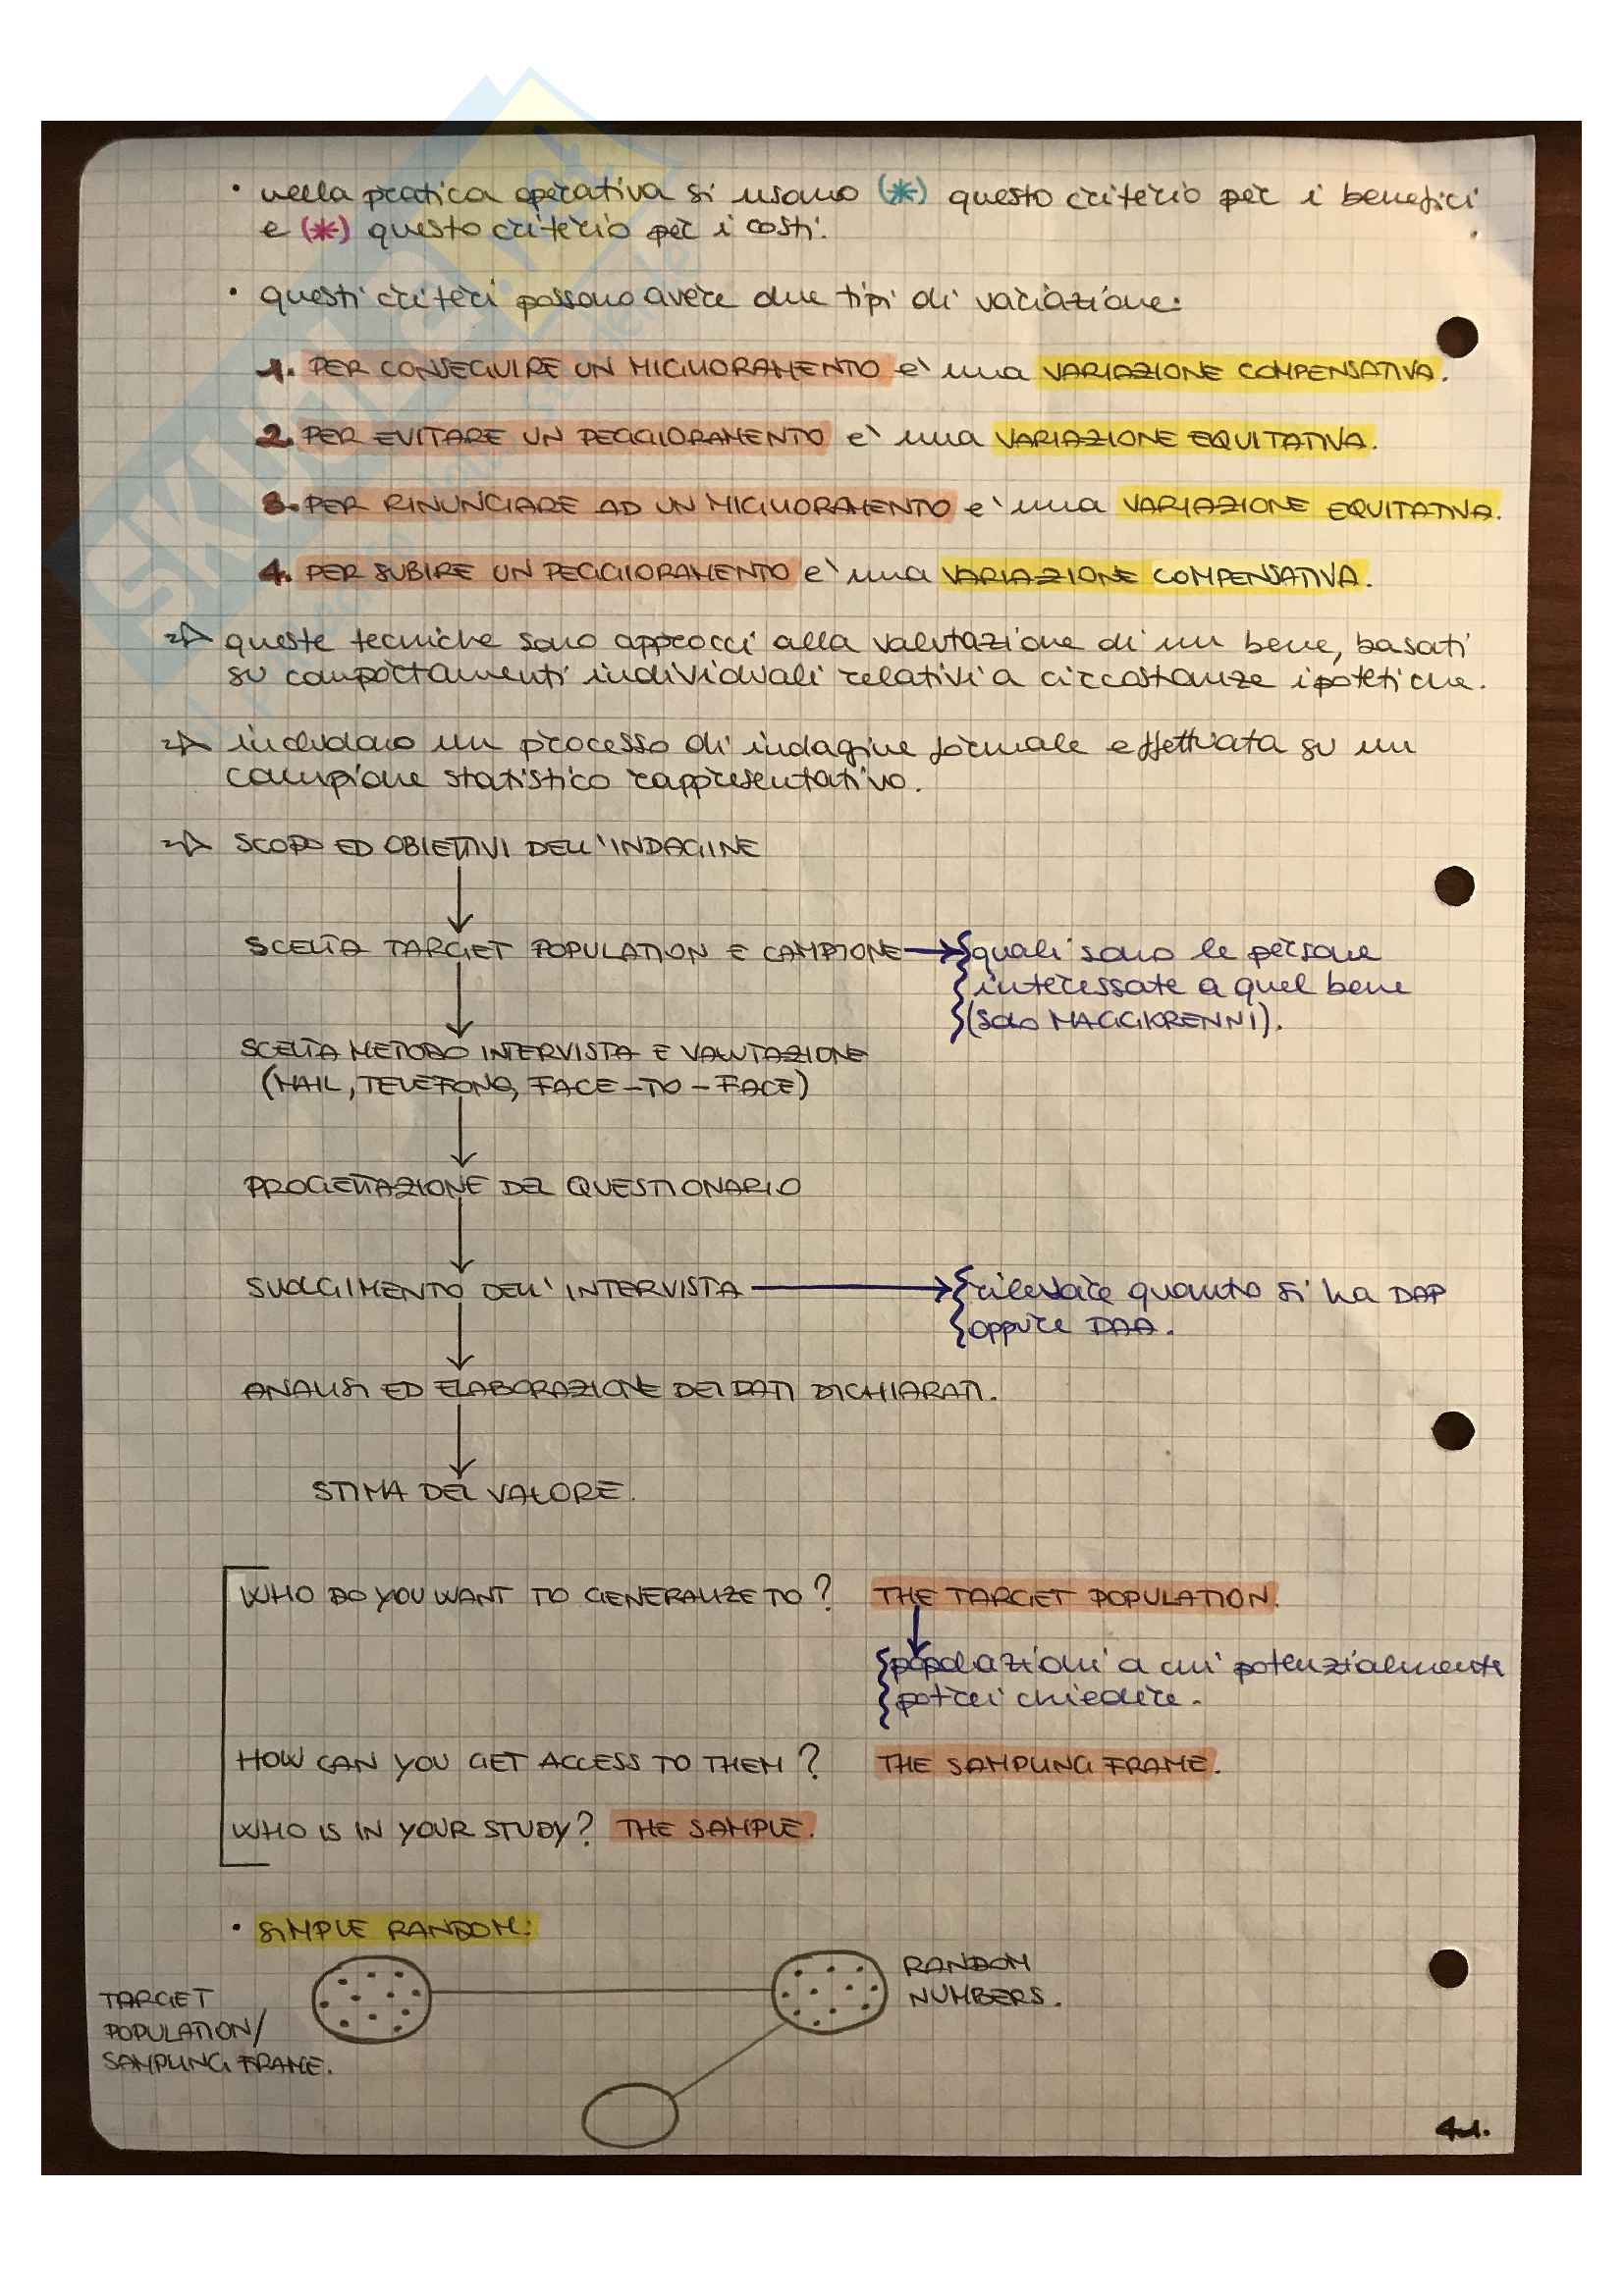 • nella pratica operativa si usano (*) questo criterio per i benefici
e (*) questo criterio per i costi.
• questi criteri possono avere due tipi di variazione:
1. PER CONSEGUIRE UN MIGLIORAMENTO e' una VARIAZIONE COMPENSATIVA.
2. PER EVITARE UN PEGGIORAMENTO e' una VARIAZIONE EQUITATIVA.
3. PER RINUNCIARE AD UN MIGLIORAMENTO e' una VARIAZIONE EQUITATIVA.
4. PER SUBIRE UN PEGGIORAMENTO e' una VARIAZIONE COMPENSATIVA.
⇒ queste tecniche sono approcci alla valutazione di un bene, basati
su comportamenti individuali relativi a circostanze ipotetiche.
⇒ includono un processo di indagine formale effettuata su un
campione statistico rappresentativo.
⇒ SCOPO ED OBIETTIVI DELL'INDAGINE
SCELTA TARGET POPULATION E CAMPIONE → quali sono le persone
interessate a quel bene
(solo MAGGIORENNI).
SCELTA METODO INTERVISTA E VALUTAZIONE
(MAIL, TELEFONO, FACE-TO-FACE)
PROGETTAZIONE DEL QUESTIONARIO
SVOLGIMENTO DELL'INTERVISTA → rilevare quanto si ha DAP
oppure DAA.
ANALISI ED ELABORAZIONE DEI DATI DICHIARATI.
STIMA DEL VALORE.
WHO DO YOU WANT TO GENERALIZE TO? THE TARGET POPULATION.
popolazioni a cui potenzialmente
potrei chiedere.
HOW CAN YOU GET ACCESS TO THEM? THE SAMPLING FRAME.
WHO IS IN YOUR STUDY? THE SAMPLE.
• SIMPLE RANDOM:
TARGET
POPULATION/
SAMPLING FRAME.
RANDOM
NUMBERS.
41.